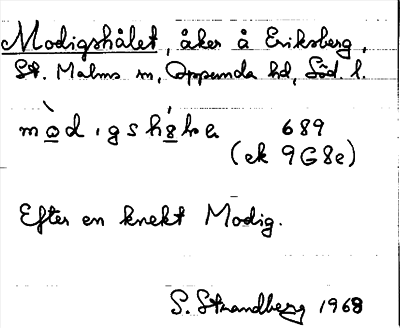 Modigshålet, åker å Eriksberg,
St. Malms sn, Oppunda hd, Söd. l.
mòdıgshålea 689
(ek 9G8e)
Efter en knekt Modig.
S. Strandberg 1968